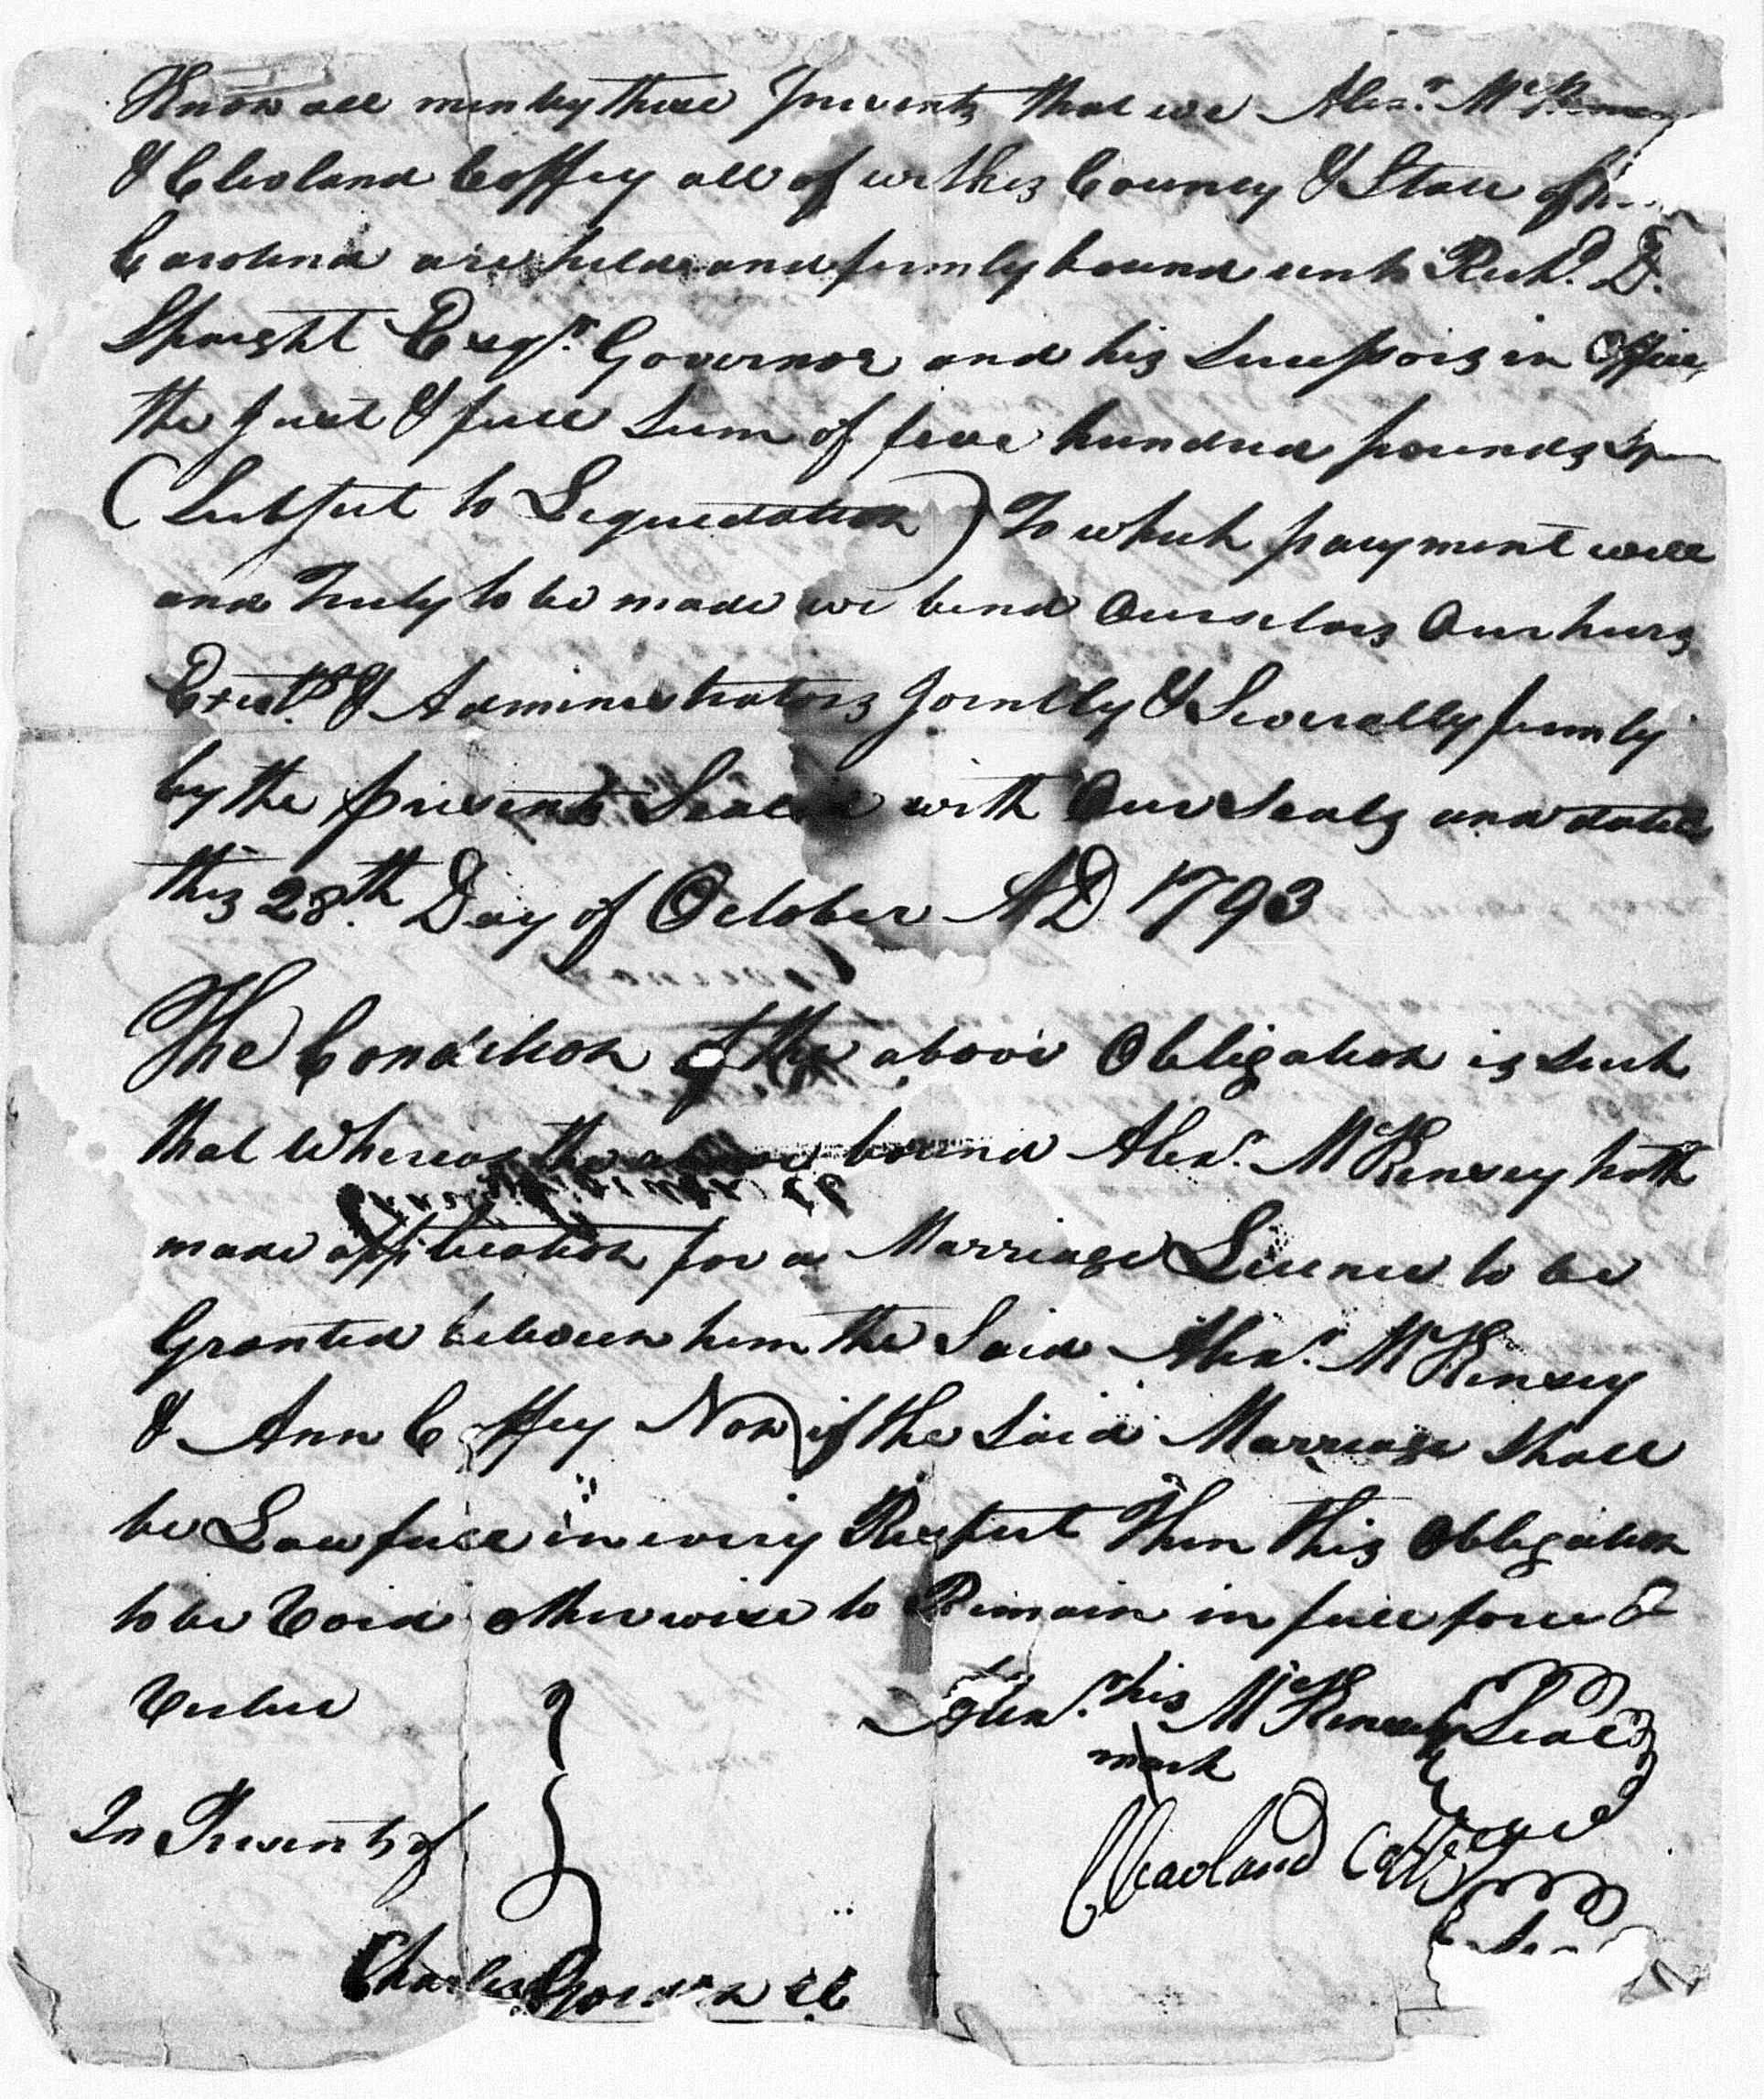 Know all men by these Presents that we Alexr. McKenzey
& Cleoland Coffey all of wilkes County & State of
Carolina are held and firmly bound unto Richd. D.
Spaight Esqr. Governor and his Sucessors in Office
the Just & full Sum of five hundred pounds
(Subject to Liquedation) To which payment well
and Truly to be made we bind Ourselves Our heirs
Exects. & Administrators Jointly & Severally firmly
by the presents Sealed with Our Seals and dated
this 28.th Day of October AD 1793
The Condition of the above Obligation is Such
that Whereas the above bound Alexr. McKenzey hath
made application for a Marriage Licence to be
Granted between him the Said Alexr. McKenzey
& Ann Coffey Now if the Said Marriage Shall
be Lawfull in every Respect Then this Obligation
to be Void otherwise to Remain in full force &
Vertue
Alexr. his McKenzey Seal
mark
In Presents of
Cleavland Coffey
Charles Gordon CC